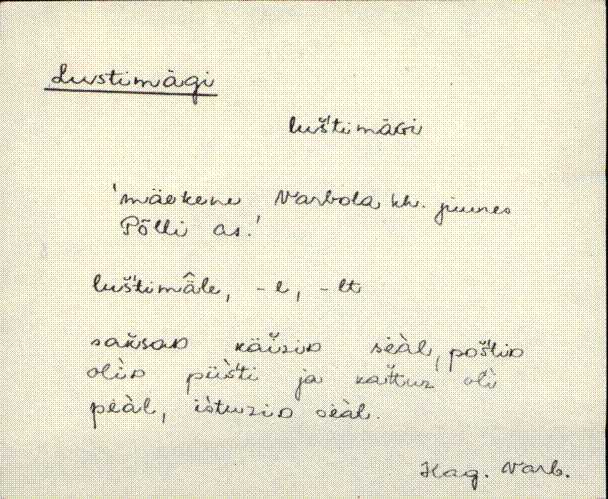 Lustimägi
luš̀timäGi
'mäekene Varbola kh. piires
Põlli as.'
luš̀timä̂le, -l, -lt
saǩsaD käǐziD sèàl, poš̀tiD
olìD püš̀ti ja kaťtuz oli
pèàl, ìstuziD sèàl.
Hag. Varb.